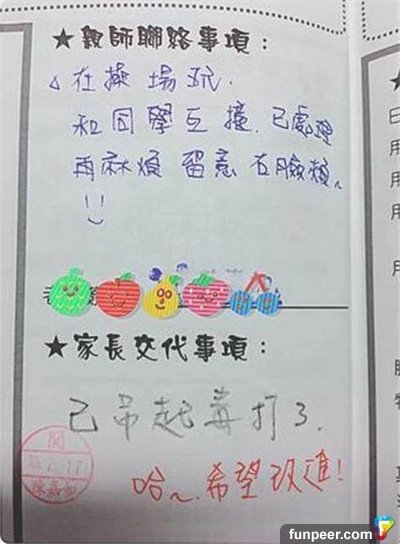 ★親師聯絡事項：
△在操場玩，
和同學互撞，已處理
再麻煩 留意 右臉頰~
!!
★家長交代事項：
已吊起毒打了，
閱
哈~希望改進！
funpeer.com